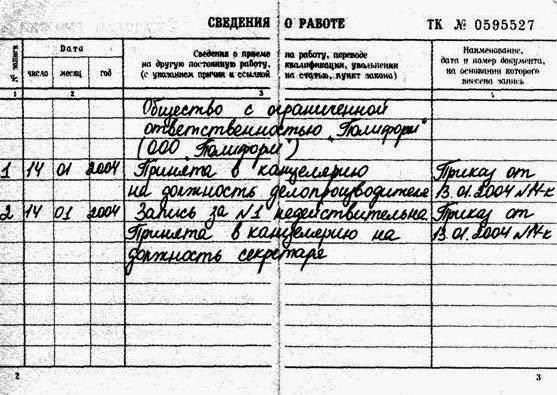 СВЕДЕНИЯ О РАБОТЕ ТК № 0595527
№ записи
Дата
число месяц год
Сведения о приеме на работу, переводе
на другую постоянную работу, квалификации, увольнении
(с указанием причин и ссылкой на статью, пункт закона)
Наименование,
дата и номер документа,
на основании которого
внесена запись
1 2 3 4
Общество с ограниченной
ответственностью „Полиформ"
(ООО „Полиформ")
1 14 01 2004 Принята в канцеллярию Приказ от
на должность делопроизводителя 13.01.2004 №1-к
2 14 01 2004 Запись за №1 недействительна Приказ от
Принята в канцелерию на 13.01.2004 №1-к
должность секретаря
2 3